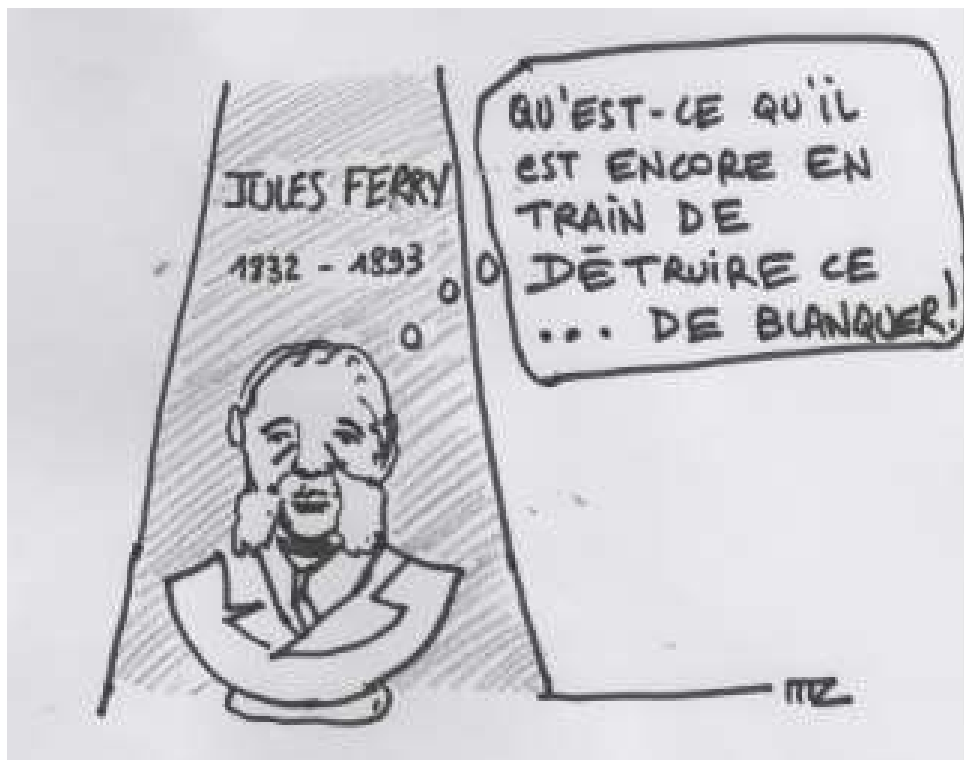 JULES FERRY
1832 - 1893
QU'EST-CE QU'iL
eST ENCORE EN
TRAiN DE
DÉTRUIRE CE
... DE BLANQUER!